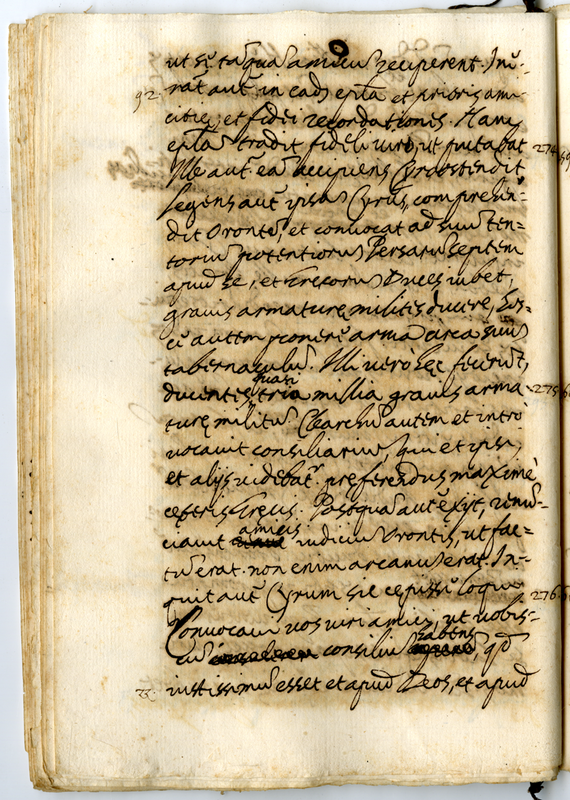 ut si tãquã amicũ reciperent. Inẽ-
92 rat autẽ in eadẽ eplã et prioris ami-
citię, et fidei recordationis. Hanc
eplã tradit fideli viro, ut putabat
Ille autẽ eã accipiens Cyro ostendit
legens autẽ ipsã Cyrus, comprehen-
dit Orontẽ, et convocat ad suũ ten-
toriũ potentiorũ Persarũ septem
apud se, et Grecorũ Duces iubet,
gravis armaturę militẽ ducere, hos-
cũ autem ponere arma circa suũ
tabernaculũ. Illi verò hęc fecerũt,
ducentes quasi tria millia gravis arma- 275
turę militũ. Clearchũ autem et intrò
vocavit consiliariũ, qui et ipsi,
et alijs videbat.r pręferendus maximè
cęteris Grecis. Postquã autẽ exijt, renũ-
ciavit amicis iudiciũ Orontis, ut fac-
tũ erat. non enim arcanũ erat. In-
quit autẽ Cyrum sic cępisse loqui 276
Convocavi vos viri amici, ut vobis-
cũ consiliũ habens, qd
23. iustissimũ esset et apud Deos, et apud